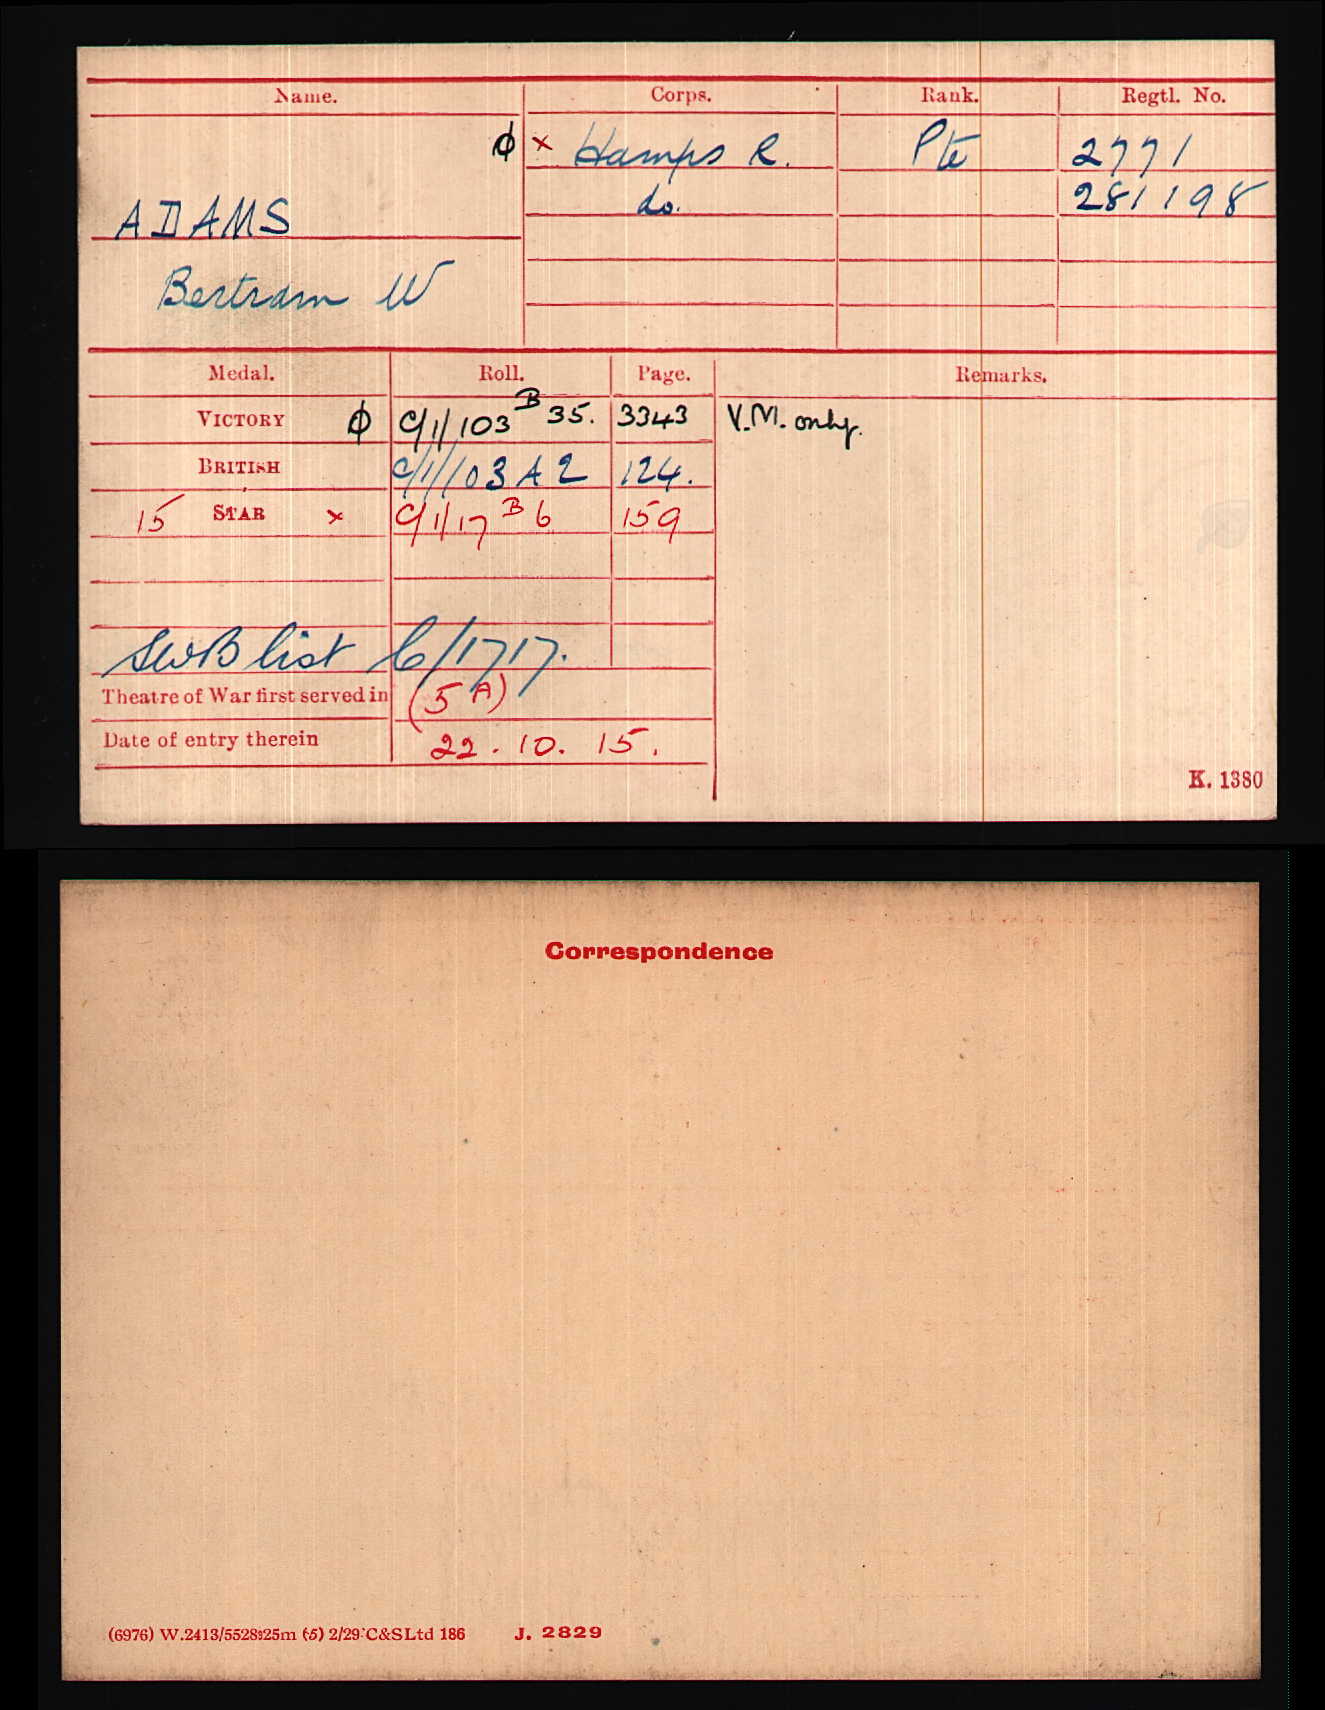 Name. Corps. Rank. Regtl. No.
ϕ × Hamps R. Pte 2771
ADAMS do. 281198
Bertram W
Medal. Roll. Page. Remarks.
VICTORY ϕ C/1/103 B 35. 3343 V.M. only.
BRITISH C/1/103 A 2 124.
15 STAR × C/1/17 B 6 159
SWB list C/1717.
Theatre of War first served in (5A)
Date of entry therein 22.10.15.
K. 1380
Correspondence
(6976) W.2413/5528 25m (5) 2/29 C&S Ltd 186 J. 2829